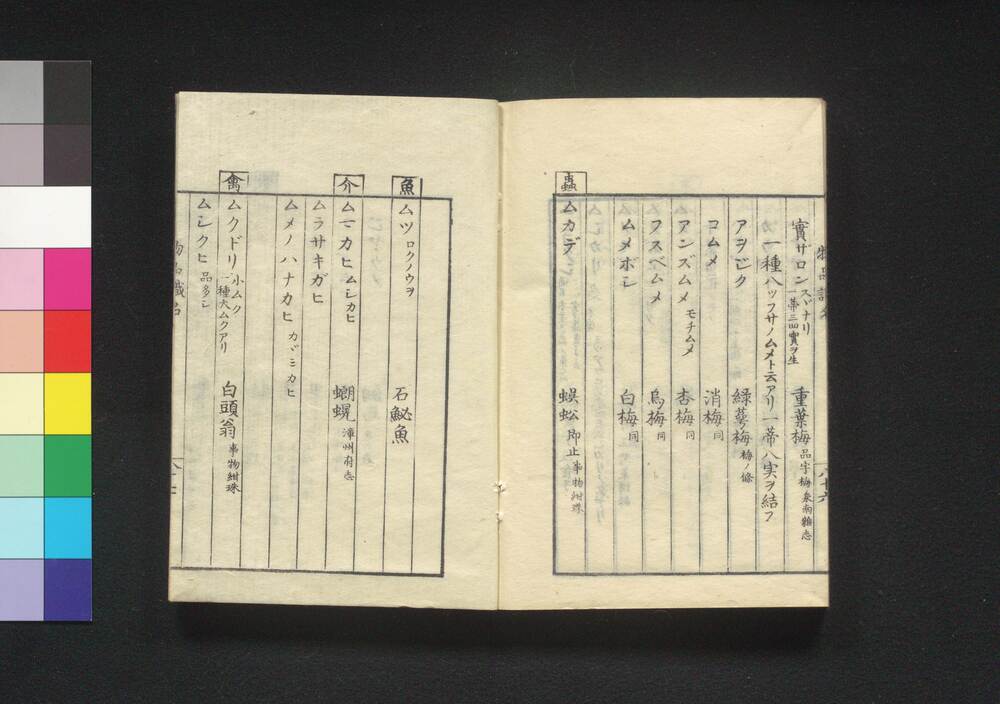 物品識名
實ザロン スヾナリ 一蒂三四實ヲ生 重葉梅 品字梅 泉南雜志
一種ハッフサノムメト云アリ一蒂八実ヲ結フ
アヲジク 緑萼梅 梅ノ條
コムメ 消梅 同
アンズムメ モチムメ 杏梅 同
フスベムメ 烏梅 同
ムメボシ 白梅 同
蟲 ムカデ 蜈蚣 即止 事物紺珠
八十六
魚 ムツ ロクノウヲ 石鮅魚
介 ムマカヒ ムシカヒ 漳州府志
ムラサキガヒ
ムメノハナカヒ カヾミカヒ
禽 ムクドリ 小ムク 一種大ムクアリ 白頭翁 事物紺珠
ムシクヒ 品多シ
物品識名